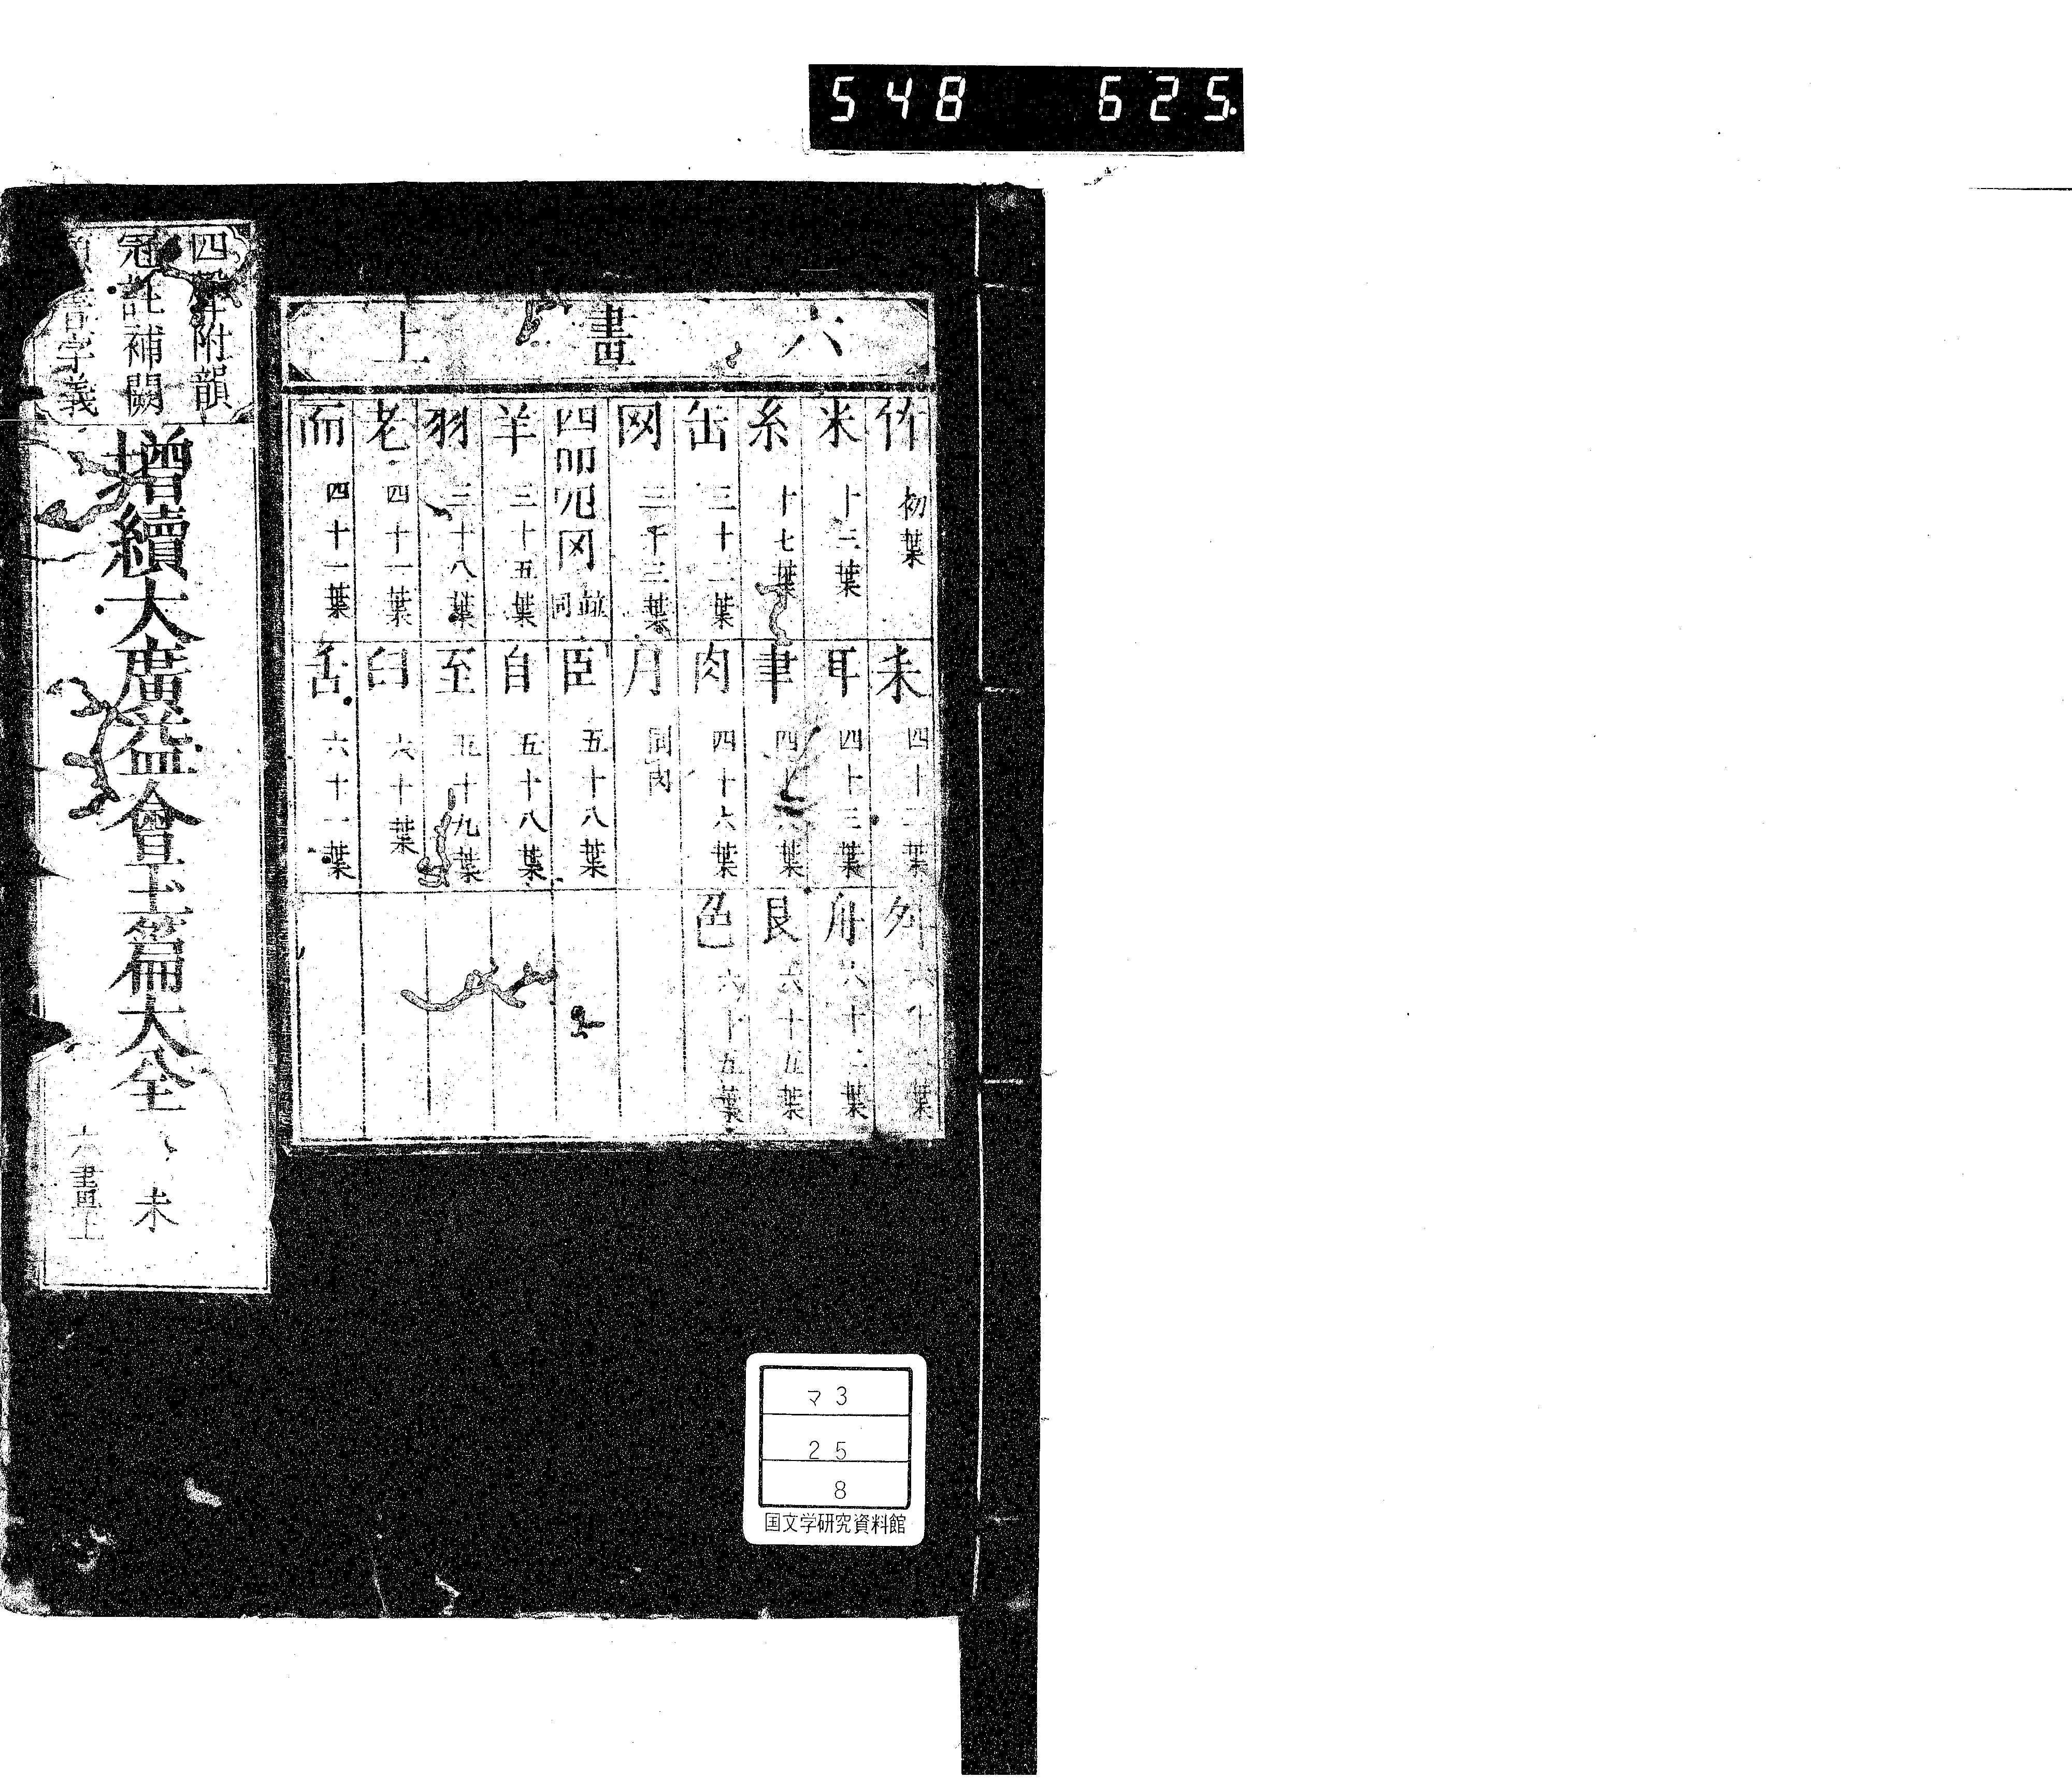 548 625.
六畫上
竹 初葉
米 十二葉
糸 十七葉
缶 三十二葉
网 三十三葉
四 㓁 冈 並同
羊 三十五葉
羽 三十八葉
老 四十一葉
而 四十一葉
耒 四十二葉
耳 四十三葉
聿 四十六葉
肉 四十六葉
月 同肉
臣 五十八葉
自 五十八葉
至 五十九葉
臼 六十葉
舌 六十一葉
舛 六十葉
舟 六十二葉
艮 六十五葉
色 六十五葉
四聲附韻
冠註補闕
字義
增續大廣益會玉篇大全
未
六畫上
マ3
25
8
国文学研究資料館